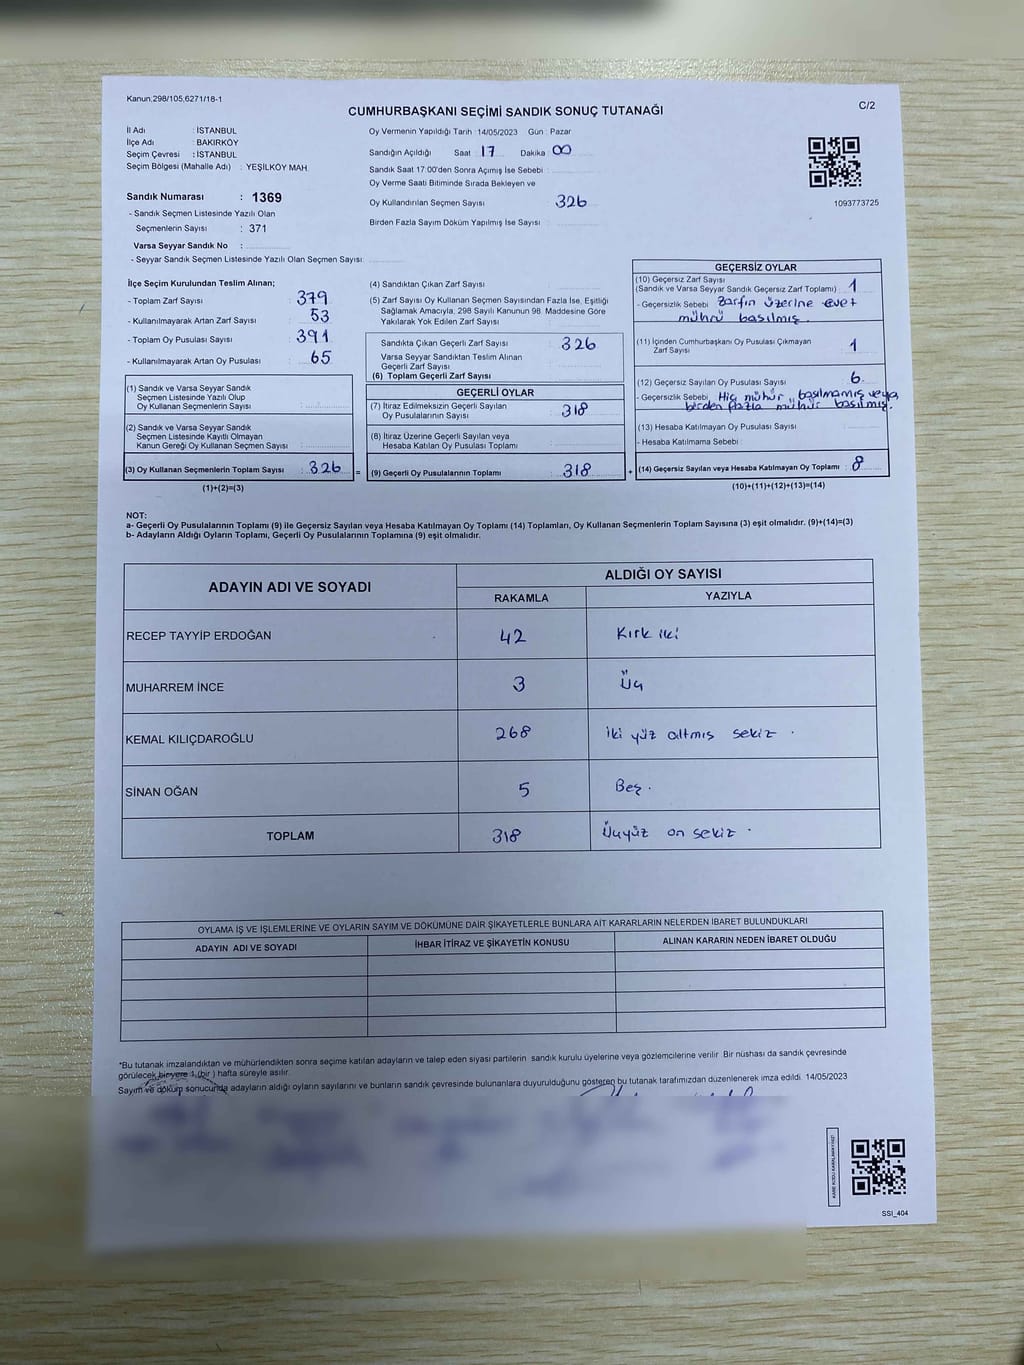 Kanun,298/105,6271/18-1
CUMHURBAŞKANI SEÇİMİ SANDIK SONUÇ TUTANAĞI
C/2
İl Adı : İSTANBUL
İlçe Adı : BAKIRKÖY
Seçim Çevresi : İSTANBUL
Seçim Bölgesi (Mahalle Adı) : YEŞİLKÖY MAH
Sandık Numarası : 1369
- Sandık Seçmen Listesinde Yazılı Olan
Seçmenlerin Sayısı : 371
Varsa Seyyar Sandık No :
- Seyyar Sandık Seçmen Listesinde Yazılı Olan Seçmen Sayısı:
Oy Vermenin Yapıldığı Tarih : 14/05/2023 Gün : Pazar
Sandığın Açıldığı Saat 17 Dakika 00
Sandık Saat 17:00'den Sonra Açımış İse Sebebi :
Oy Verme Saati Bitiminde Sırada Bekleyen ve
Oy Kullandırılan Seçmen Sayısı : 326
Birden Fazla Sayım Döküm Yapılmış İse Sayısı :
1093773725
İlçe Seçim Kurulundan Teslim Alınan;
- Toplam Zarf Sayısı : 379
- Kullanılmayarak Artan Zarf Sayısı : 53
- Toplam Oy Pusulası Sayısı : 391
- Kullanılmayarak Artan Oy Pusulası : 65
(1) Sandık ve Varsa Seyyar Sandık
Seçmen Listesinde Yazılı Olup
Oy Kullanan Seçmenlerin Sayısı :
(2) Sandık ve Varsa Seyyar Sandık
Seçmen Listesinde Kayıtlı Olmayan
Kanun Gereği Oy Kullanan Seçmen Sayısı :
(3) Oy Kullanan Seçmenlerin Toplam Sayısı : 326
(1)+(2)=(3)
(4) Sandıktan Çıkan Zarf Sayısı :
(5) Zarf Sayısı Oy Kullanan Seçmen Sayısından Fazla İse, Eşitliği
Sağlamak Amacıyla, 298 Sayılı Kanunun 98. Maddesine Göre
Yakılarak Yok Edilen Zarf Sayısı :
Sandıkta Çıkan Geçerli Zarf Sayısı : 326
Varsa Seyyar Sandıktan Teslim Alınan
Geçerli Zarf Sayısı :
(6) Toplam Geçerli Zarf Sayısı :
GEÇERLİ OYLAR
(7) İtiraz Edilmeksizin Geçerli Sayılan
Oy Pusulalarının Sayısı : 318
(8) İtiraz Üzerine Geçerli Sayılan veya
Hesaba Katılan Oy Pusulası Toplamı :
= (9) Geçerli Oy Pusulalarının Toplamı : 318 +
GEÇERSİZ OYLAR
(10) Geçersiz Zarf Sayısı
(Sandık ve Varsa Seyyar Sandık Geçersiz Zarf Toplamı) : 1
- Geçersizlik Sebebi : Zarfın üzerine evet
mührü basılmış.
(11) İçinden Cumhurbaşkanı Oy Pusulası Çıkmayan
Zarf Sayısı : 1
(12) Geçersiz Sayılan Oy Pusulası Sayısı : 6.
- Geçersizlik Sebebi : Hiç mühür basılmamış veya
birden fazla mühür basılmış.
(13) Hesaba Katılmayan Oy Pusulası Sayısı :
- Hesaba Katılmama Sebebi :
(14) Geçersiz Sayılan veya Hesaba Katılmayan Oy Toplamı : 8
(10)+(11)+(12)+(13)=(14)
NOT:
a- Geçerli Oy Pusulalarının Toplamı (9) ile Geçersiz Sayılan veya Hesaba Katılmayan Oy Toplamı (14) Toplamları, Oy Kullanan Seçmenlerin Toplam Sayısına (3) eşit olmalıdır. (9)+(14)=(3)
b- Adayların Aldığı Oyların Toplamı, Geçerli Oy Pusulalarının Toplamına (9) eşit olmalıdır.
ADAYIN ADI VE SOYADI
ALDIĞI OY SAYISI
RAKAMLA YAZIYLA
RECEP TAYYİP ERDOĞAN 42 Kırk iki
MUHARREM İNCE 3 Üç
KEMAL KILIÇDAROĞLU 268 iki yüz altmış sekiz .
SİNAN OĞAN 5 Beş.
TOPLAM 318 Üçyüz on sekiz .
OYLAMA İŞ VE İŞLEMLERİNE VE OYLARIN SAYIM VE DÖKÜMÜNE DAİR ŞİKAYETLERLE BUNLARA AİT KARARLARIN NELERDEN İBARET BULUNDUKLARI
ADAYIN ADI VE SOYADI İHBAR İTİRAZ VE ŞİKAYETİN KONUSU ALINAN KARARIN NEDEN İBARET OLDUĞU
*Bu tutanak imzalandıktan ve mühürlendikten sonra seçime katılan adayların ve talep eden siyasi partilerin sandık kurulu üyelerine veya gözlemcilerine verilir Bir nüshası da sandık çevresinde
görülecek bir yere 1 (bir ) hafta süreyle asılır.
Sayım ve döküm sonucunda adayların aldığı oyların sayılarını ve bunların sandık çevresinde bulunanlara duyurulduğunu gösteren bu tutanak tarafımızdan düzenlenerek imza edildi. 14/05/2023
SSI_404